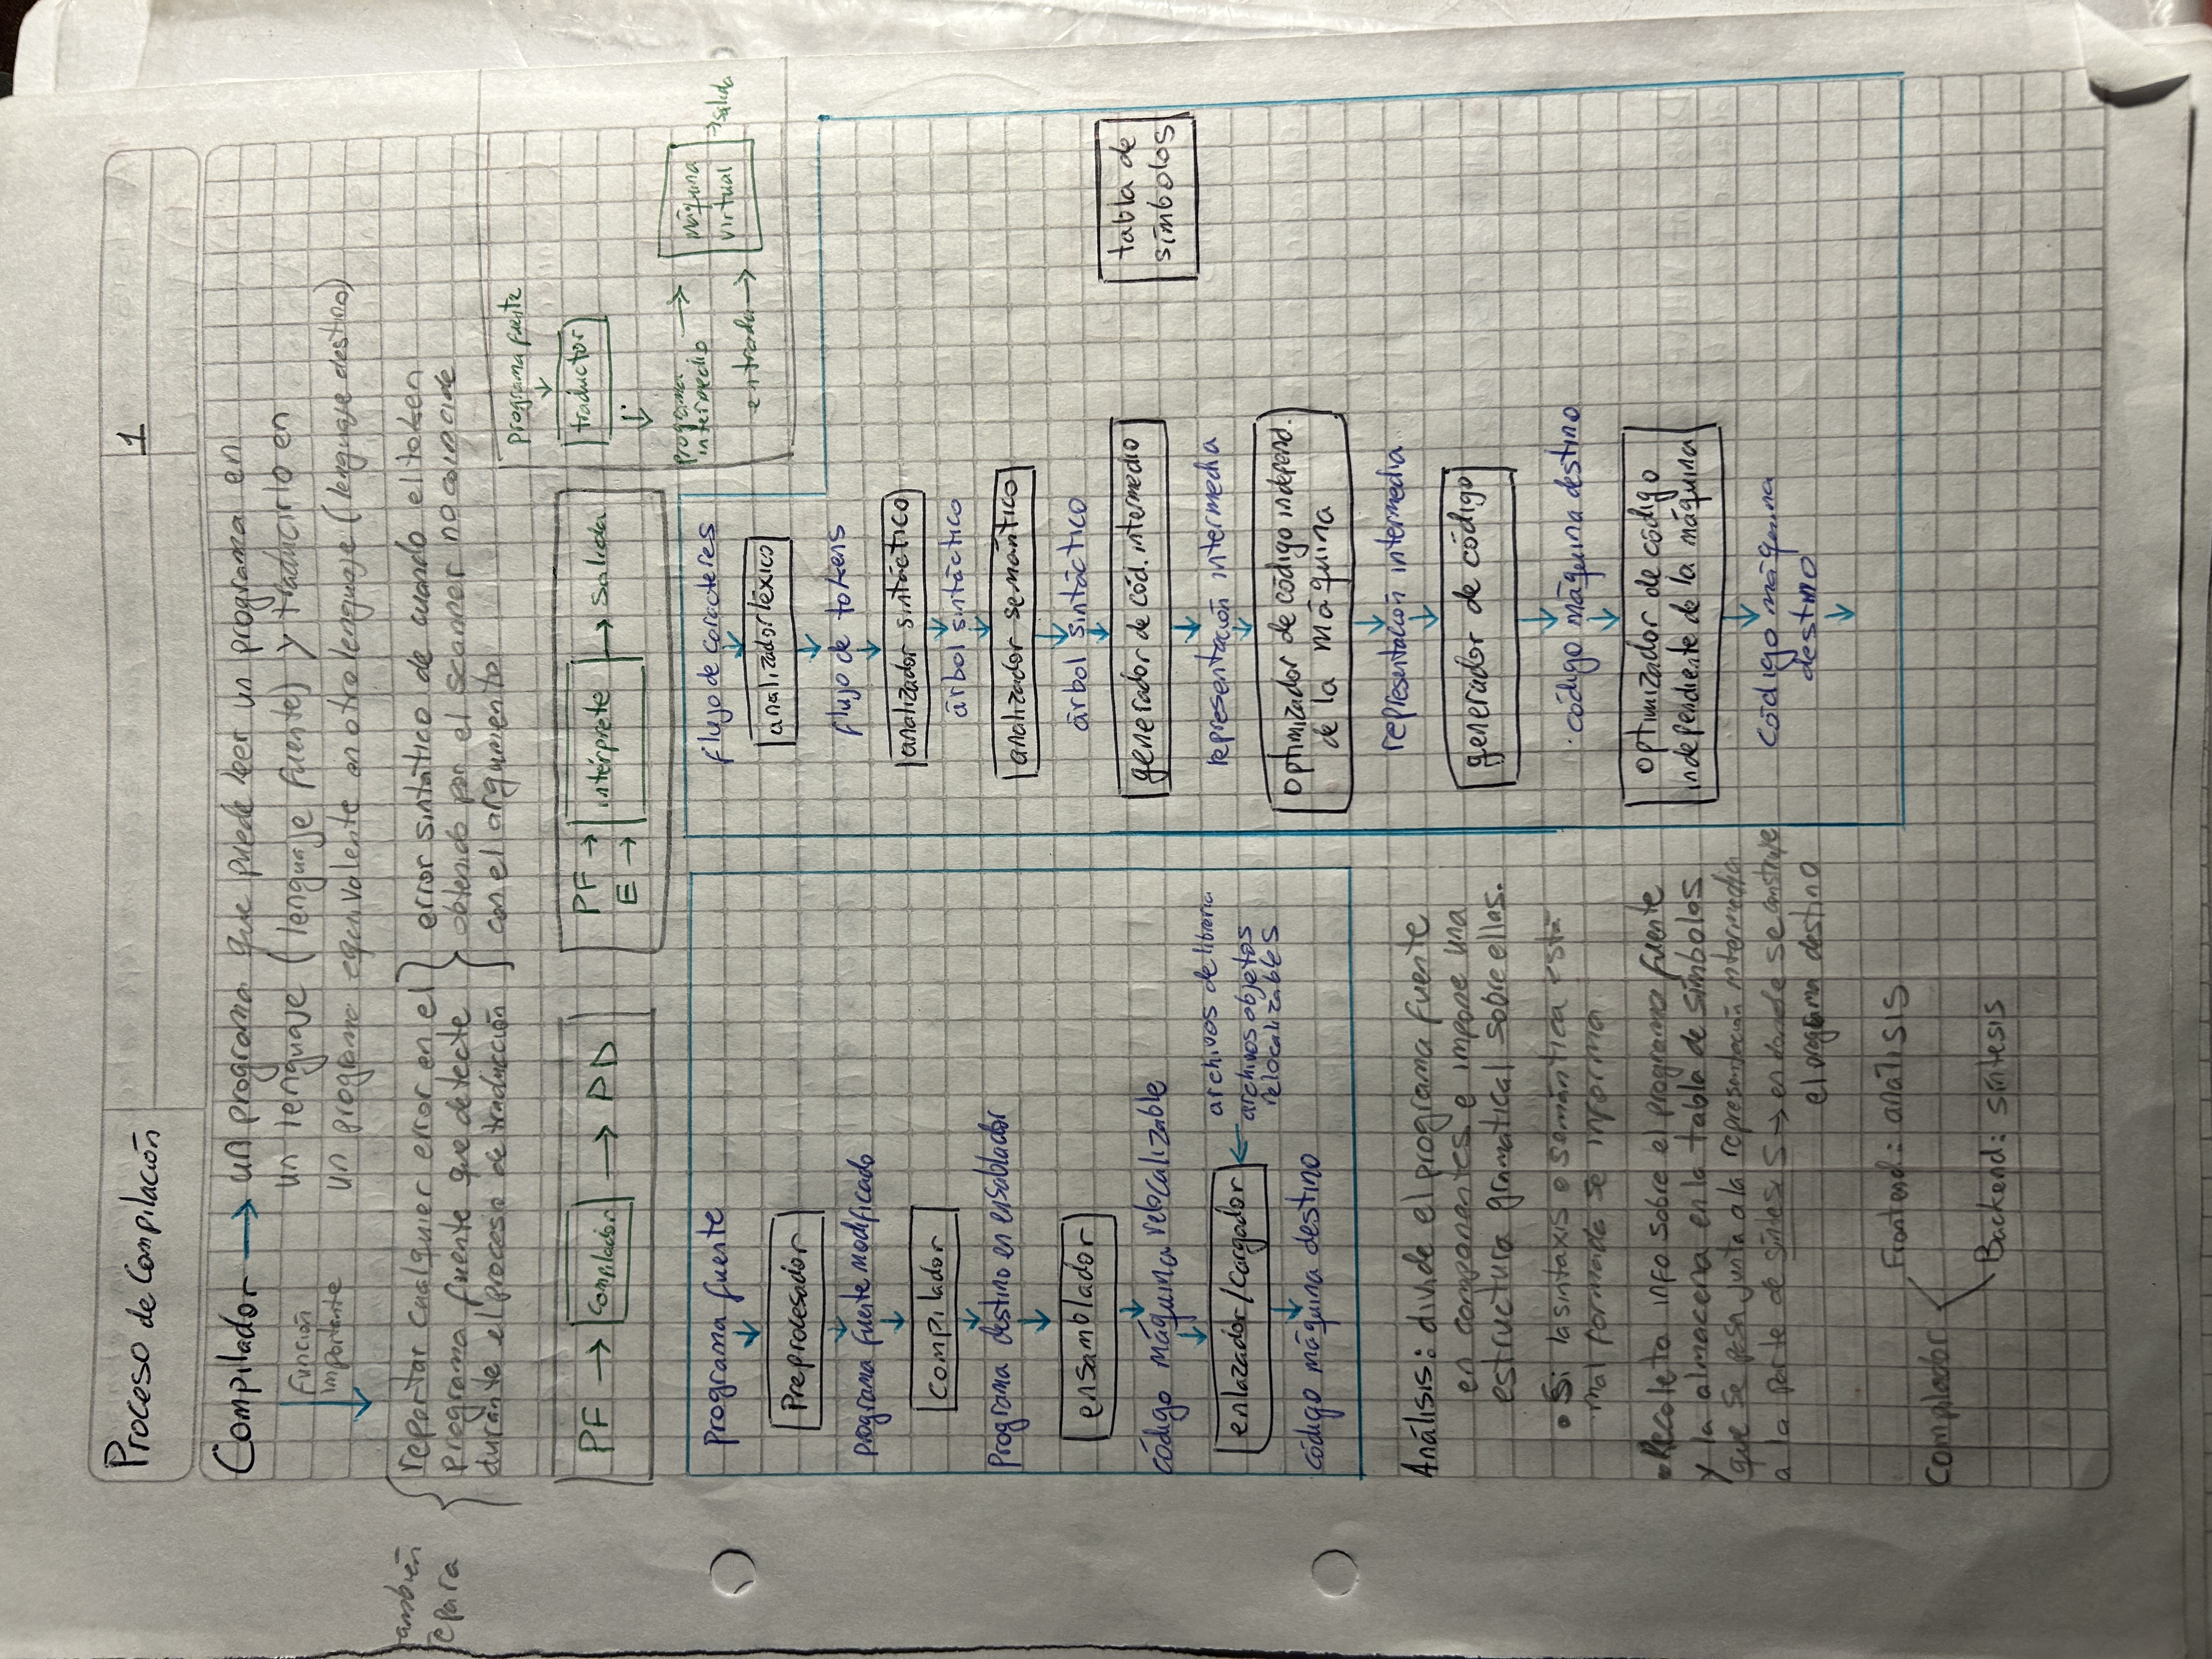 Proceso de Compilación
1
Compilador → un programa que puede leer un programa en
un lenguaje (lenguaje fuente) y traducirlo en
un programa equivalente en otro lenguaje (lenguaje destino)
Función
importante
también
repara
reportar cualquier error en el
programa fuente que detecte
durante el proceso de traducción
error sintático de cuando el token
obtenido por el scanner no coincide
con el argumento
PF → compilador → PD
PF →
E →
intérprete → salida
programa fuente
↓
traductor
↓
programa
intermedio →
entrada →
máquina
virtual
→ salida
programa fuente
↓
Preprocesador
↓
programa fuente modificado
↓
compilador
↓
programa destino en ensablador
↓
ensamblador
↓
código máquina relocalizable
↓
enlazador/cargador ←
archivos de librería
archivos objetos
relocalizables
↓
código máquina destino
flujo de caracteres
↓
analizador léxico
↓
flujo de tokens
↓
analizador sintáctico
↓
árbol sintáctico
↓
analizador semántico
↓
árbol sintáctico
↓
generador de cód. intermedio
↓
representación intermedia
↓
optimizador de código independ.
de la máquina
↓
representación intermedia
↓
generador de código
↓
código máquina destino
↓
optimizador de código
independiente de la máquina
↓
código máquina
destino
↓
tabla de
símbolos
Análisis: divide el programa fuente
en componentes e impone una
estructura gramatical sobre ellas.
• Si la sintaxis o semántica está
mal formada se informa
• Recoleta info sobre el programa fuente
y la almacena en la tabla de símbolos
que se pasa junta a la representación intermedia
a la parte de síntesis → en donde se construye
el programa destino
Compilador
Frontend: análisis
Backend: síntesis